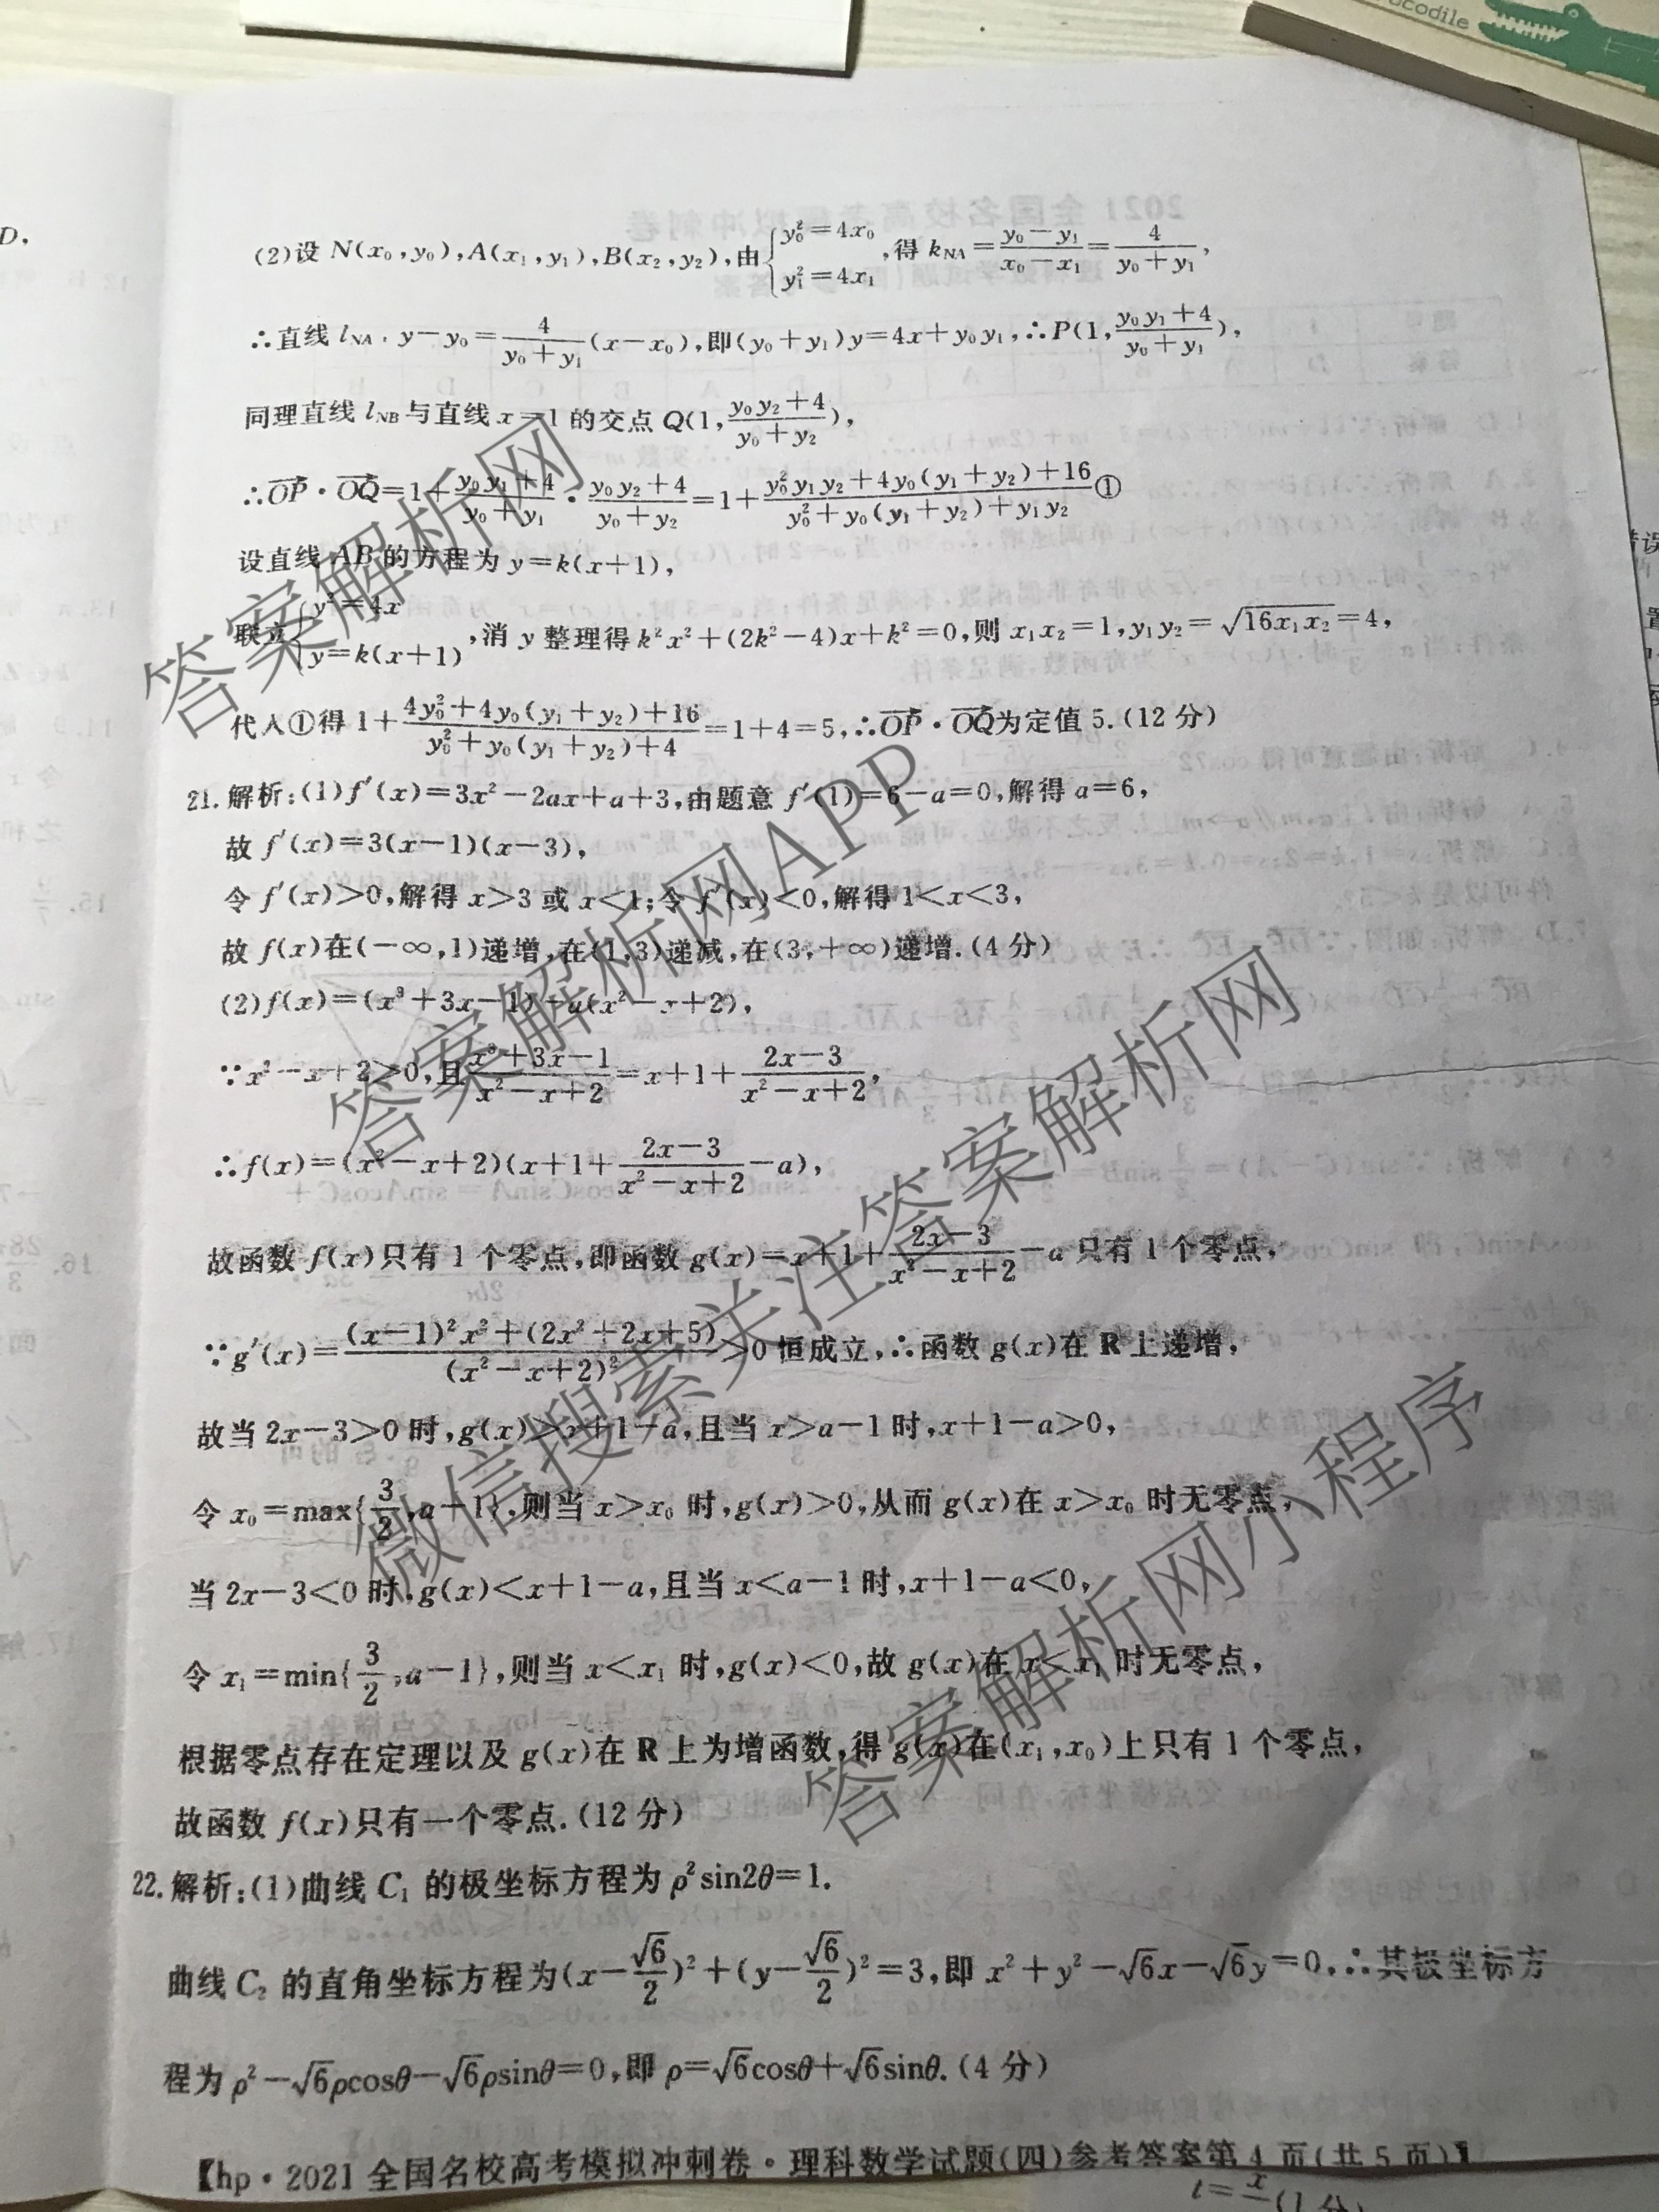 (2)设 N(x₀,y₀),A(x₁,y₁),B(x₂,y₂),由{y₀²=4x₀ y₁²=4x₁,得 k_NA=(y₀-y₁)/(x₀-x₁)=4/(y₀+y₁),
∴直线 l_NA:y-y₀=4/(y₀+y₁)(x-x₀),即(y₀+y₁)y=4x+y₀y₁,∴P(1,(y₀y₁+4)/(y₀+y₁)),
同理直线 l_NB与直线 x=1 的交点 Q(1,(y₀y₂+4)/(y₀+y₂)),
∴OP·OQ=1+(y₀y₁+4)/(y₀+y₁)·(y₀y₂+4)/(y₀+y₂)=1+(y₀²y₁y₂+4y₀(y₁+y₂)+16)/(y₀²+y₀(y₁+y₂)+y₁y₂)①
设直线 AB 的方程为 y=k(x+1),
联立{y²=4x y=k(x+1),消 y 整理得 k²x²+(2k²-4)x+k²=0,则 x₁x₂=1,y₁y₂=√(16x₁x₂)=4,
代入①得 1+(4y₀²+4y₀(y₁+y₂)+16)/(y₀²+y₀(y₁+y₂)+4)=1+4=5,∴OP·OQ为定值 5.(12 分)
21.解析:(1)f′(x)=3x²-2ax+a+3,由题意 f′(1)=6-a=0,解得 a=6,
故 f′(x)=3(x-1)(x-3),
令 f′(x)>0,解得 x>3 或 x<1;令 f′(x)<0,解得 1<x<3,
故 f(x)在(-∞,1)递增,在(1,3)递减,在(3,+∞)递增.(4 分)
(2)f(x)=(x³+3x-1)-a(x²-x+2),
∵x²-x+2>0,且(x³+3x-1)/(x²-x+2)=x+1+(2x-3)/(x²-x+2),
∴f(x)=(x²-x+2)(x+1+(2x-3)/(x²-x+2)-a),
故函数 f(x)只有 1 个零点,即函数 g(x)=x+1+(2x-3)/(x²-x+2)-a 只有 1 个零点,
∵g′(x)=((x-1)²x²+(2x²+2x+5))/(x²-x+2)²>0 恒成立,∴函数 g(x)在 R 上递增,
故当 2x-3>0 时,g(x)>x+1-a,且当 x>a-1 时,x+1-a>0,
令 x₀=max{3/2,a-1},则当 x>x₀ 时,g(x)>0,从而 g(x)在 x>x₀ 时无零点,
当 2x-3<0 时,g(x)<x+1-a,且当 x<a-1 时,x+1-a<0,
令 x₁=min{3/2,a-1},则当 x<x₁ 时,g(x)<0,故 g(x)在 x<x₁ 时无零点,
根据零点存在定理以及 g(x)在 R 上为增函数,得 g(x)在(x₁,x₀)上只有 1 个零点,
故函数 f(x)只有一个零点.(12 分)
22.解析:(1)曲线 C₁ 的极坐标方程为 ρ²sin2θ=1.
曲线 C₂ 的直角坐标方程为(x-√6/2)²+(y-√6/2)²=3,即 x²+y²-√6x-√6y=0,∴其极坐标方
程为 ρ²-√6ρcosθ-√6ρsinθ=0,即 ρ=√6cosθ+√6sinθ.(4 分)
【hp·2021 全国名校高考模拟冲刺卷·理科数学试题(四)参考答案第 4 页(共 5 页)】
答案解析网
答案解析网APP
微信搜索关注答案解析网
答案解析网小程序